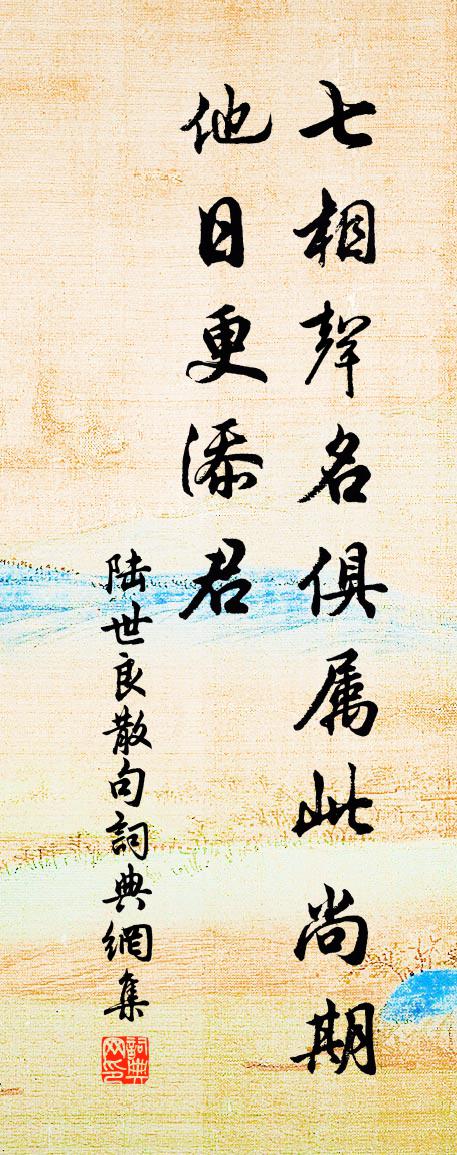 七相聲名俱属此尚期
他日更添君
陆世良散句詞典網集
詞典
网印